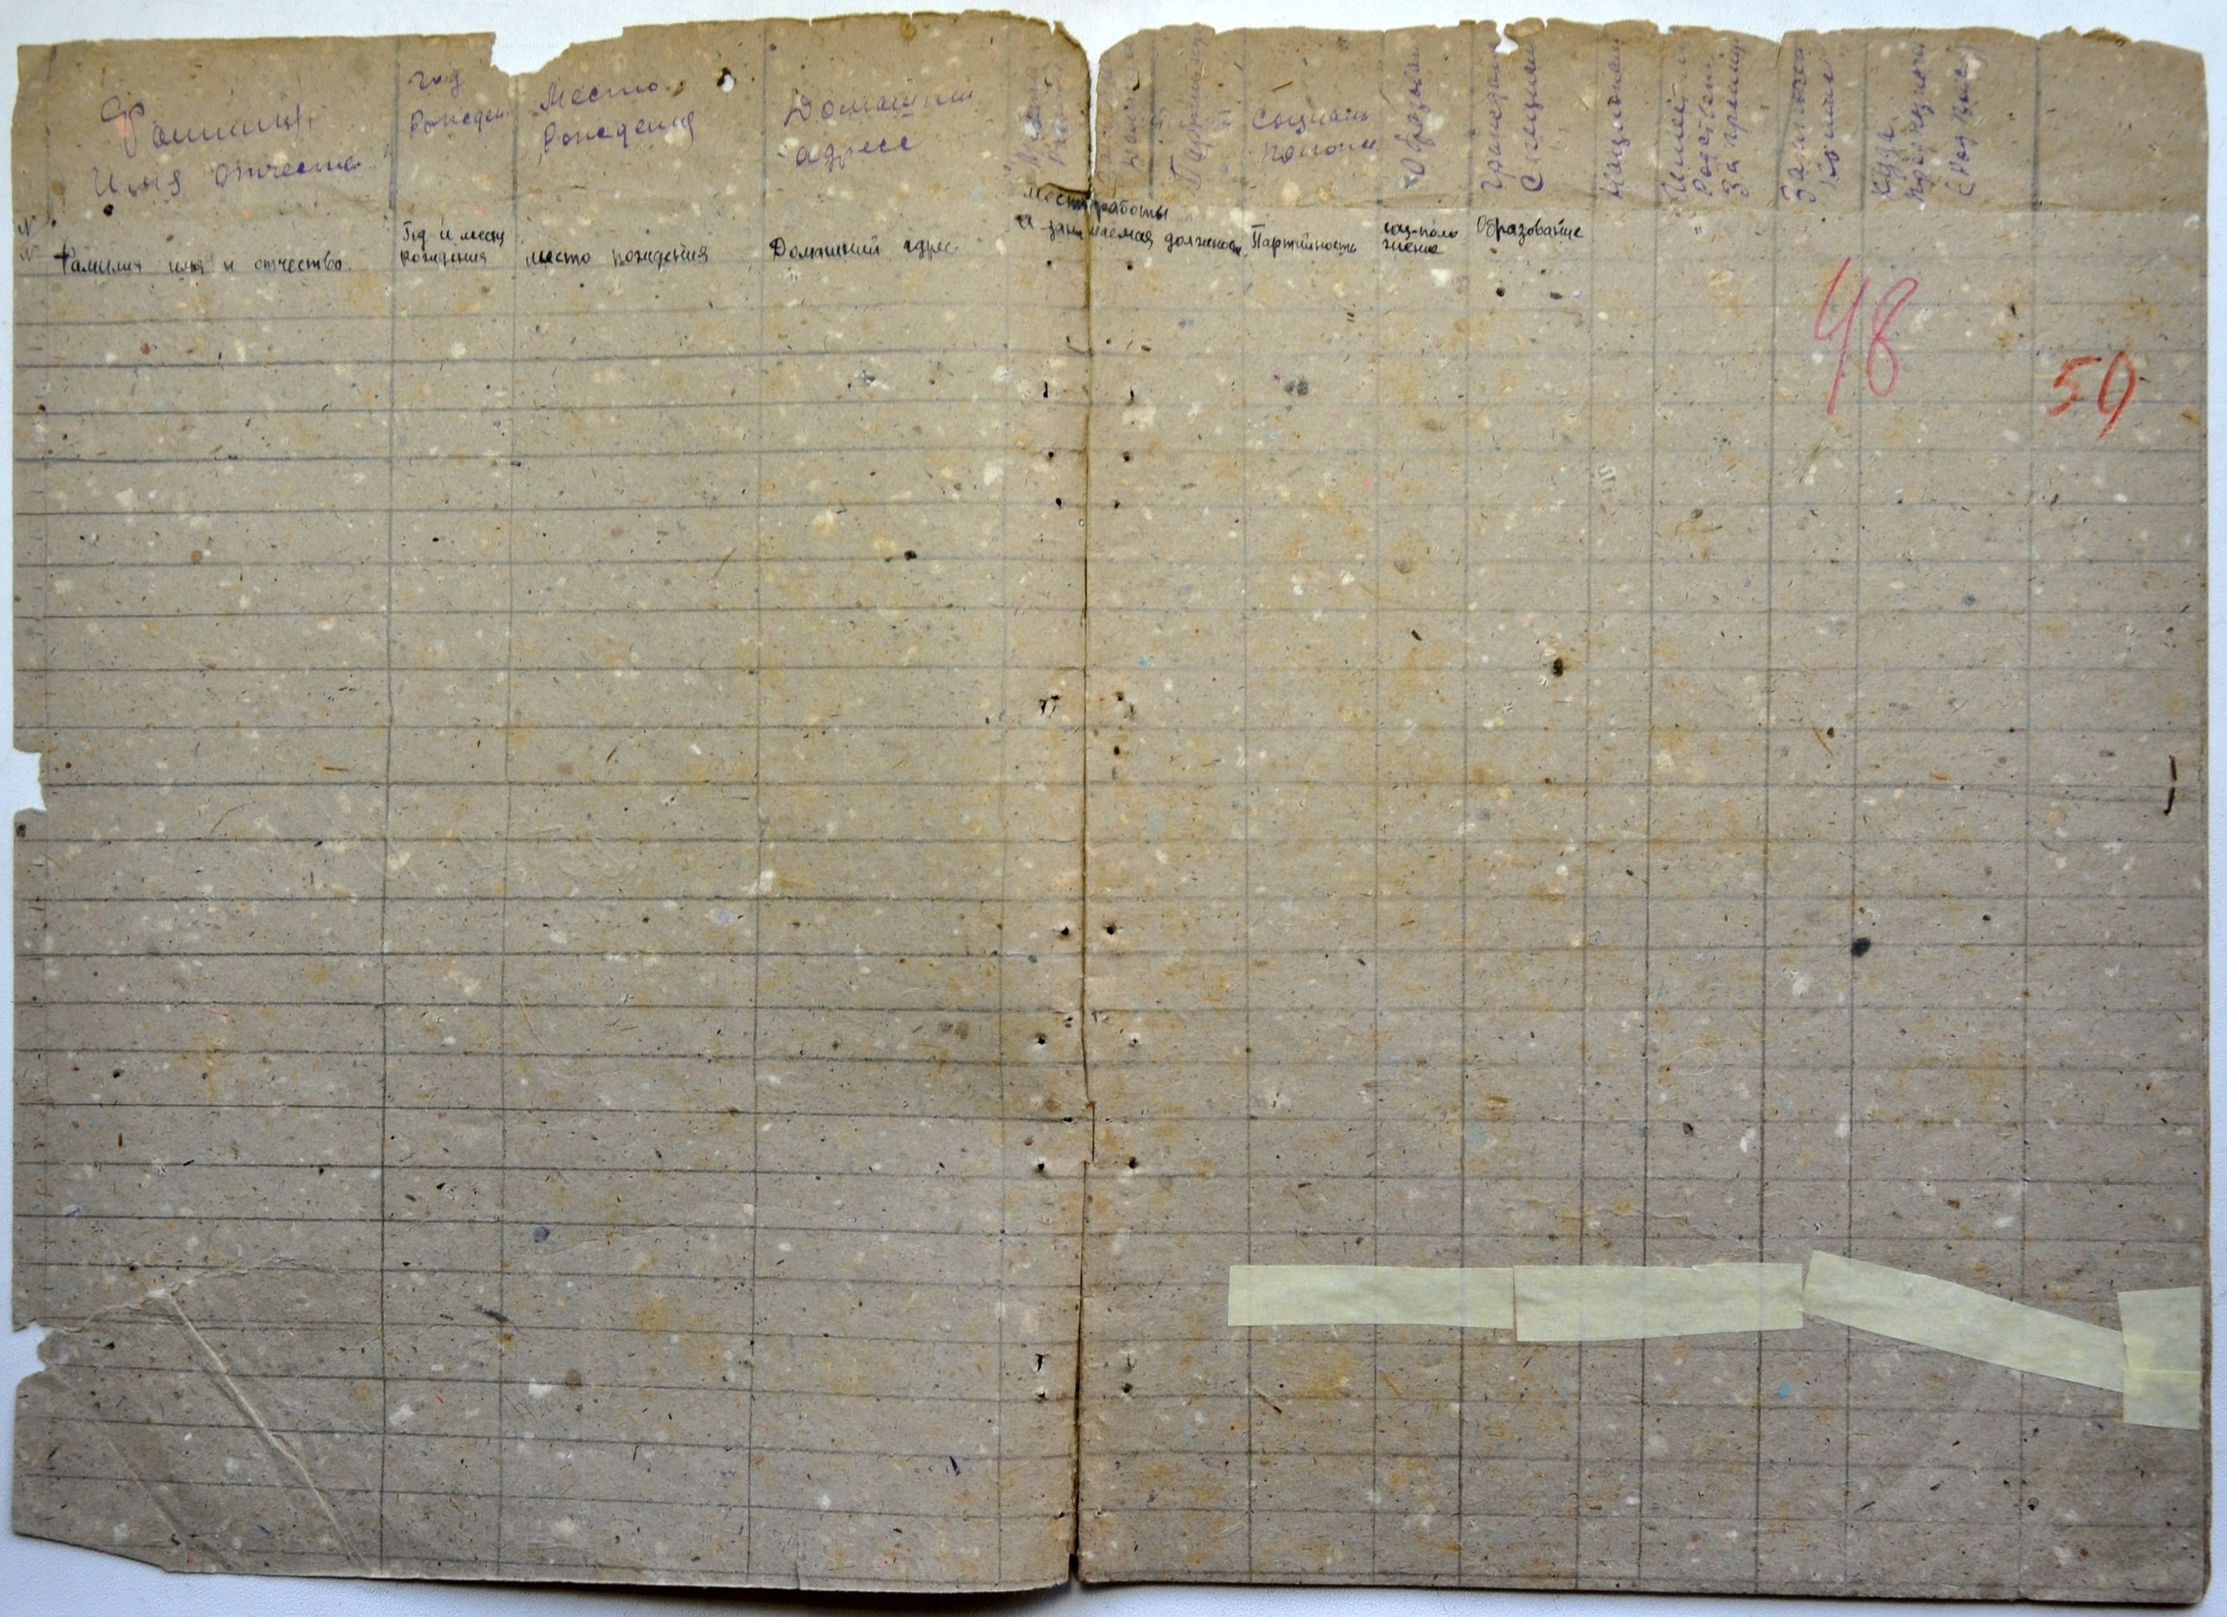 Фамилия,
Имя Отчество
год
Рожден
Место
Рождения
Домашний
адрес
Партийност
Социаль
положен
Образован
Гражданск
Специаль
Национальн
Имеет ли
Родствен
За границ
Куда
№
№
Фамилия имя и отчество.
Год и месяц
рождения
место рождения
Домашний адрес
место работы
и занимаемая должность
Партийность
соц-поло
жение
Образование
48
50